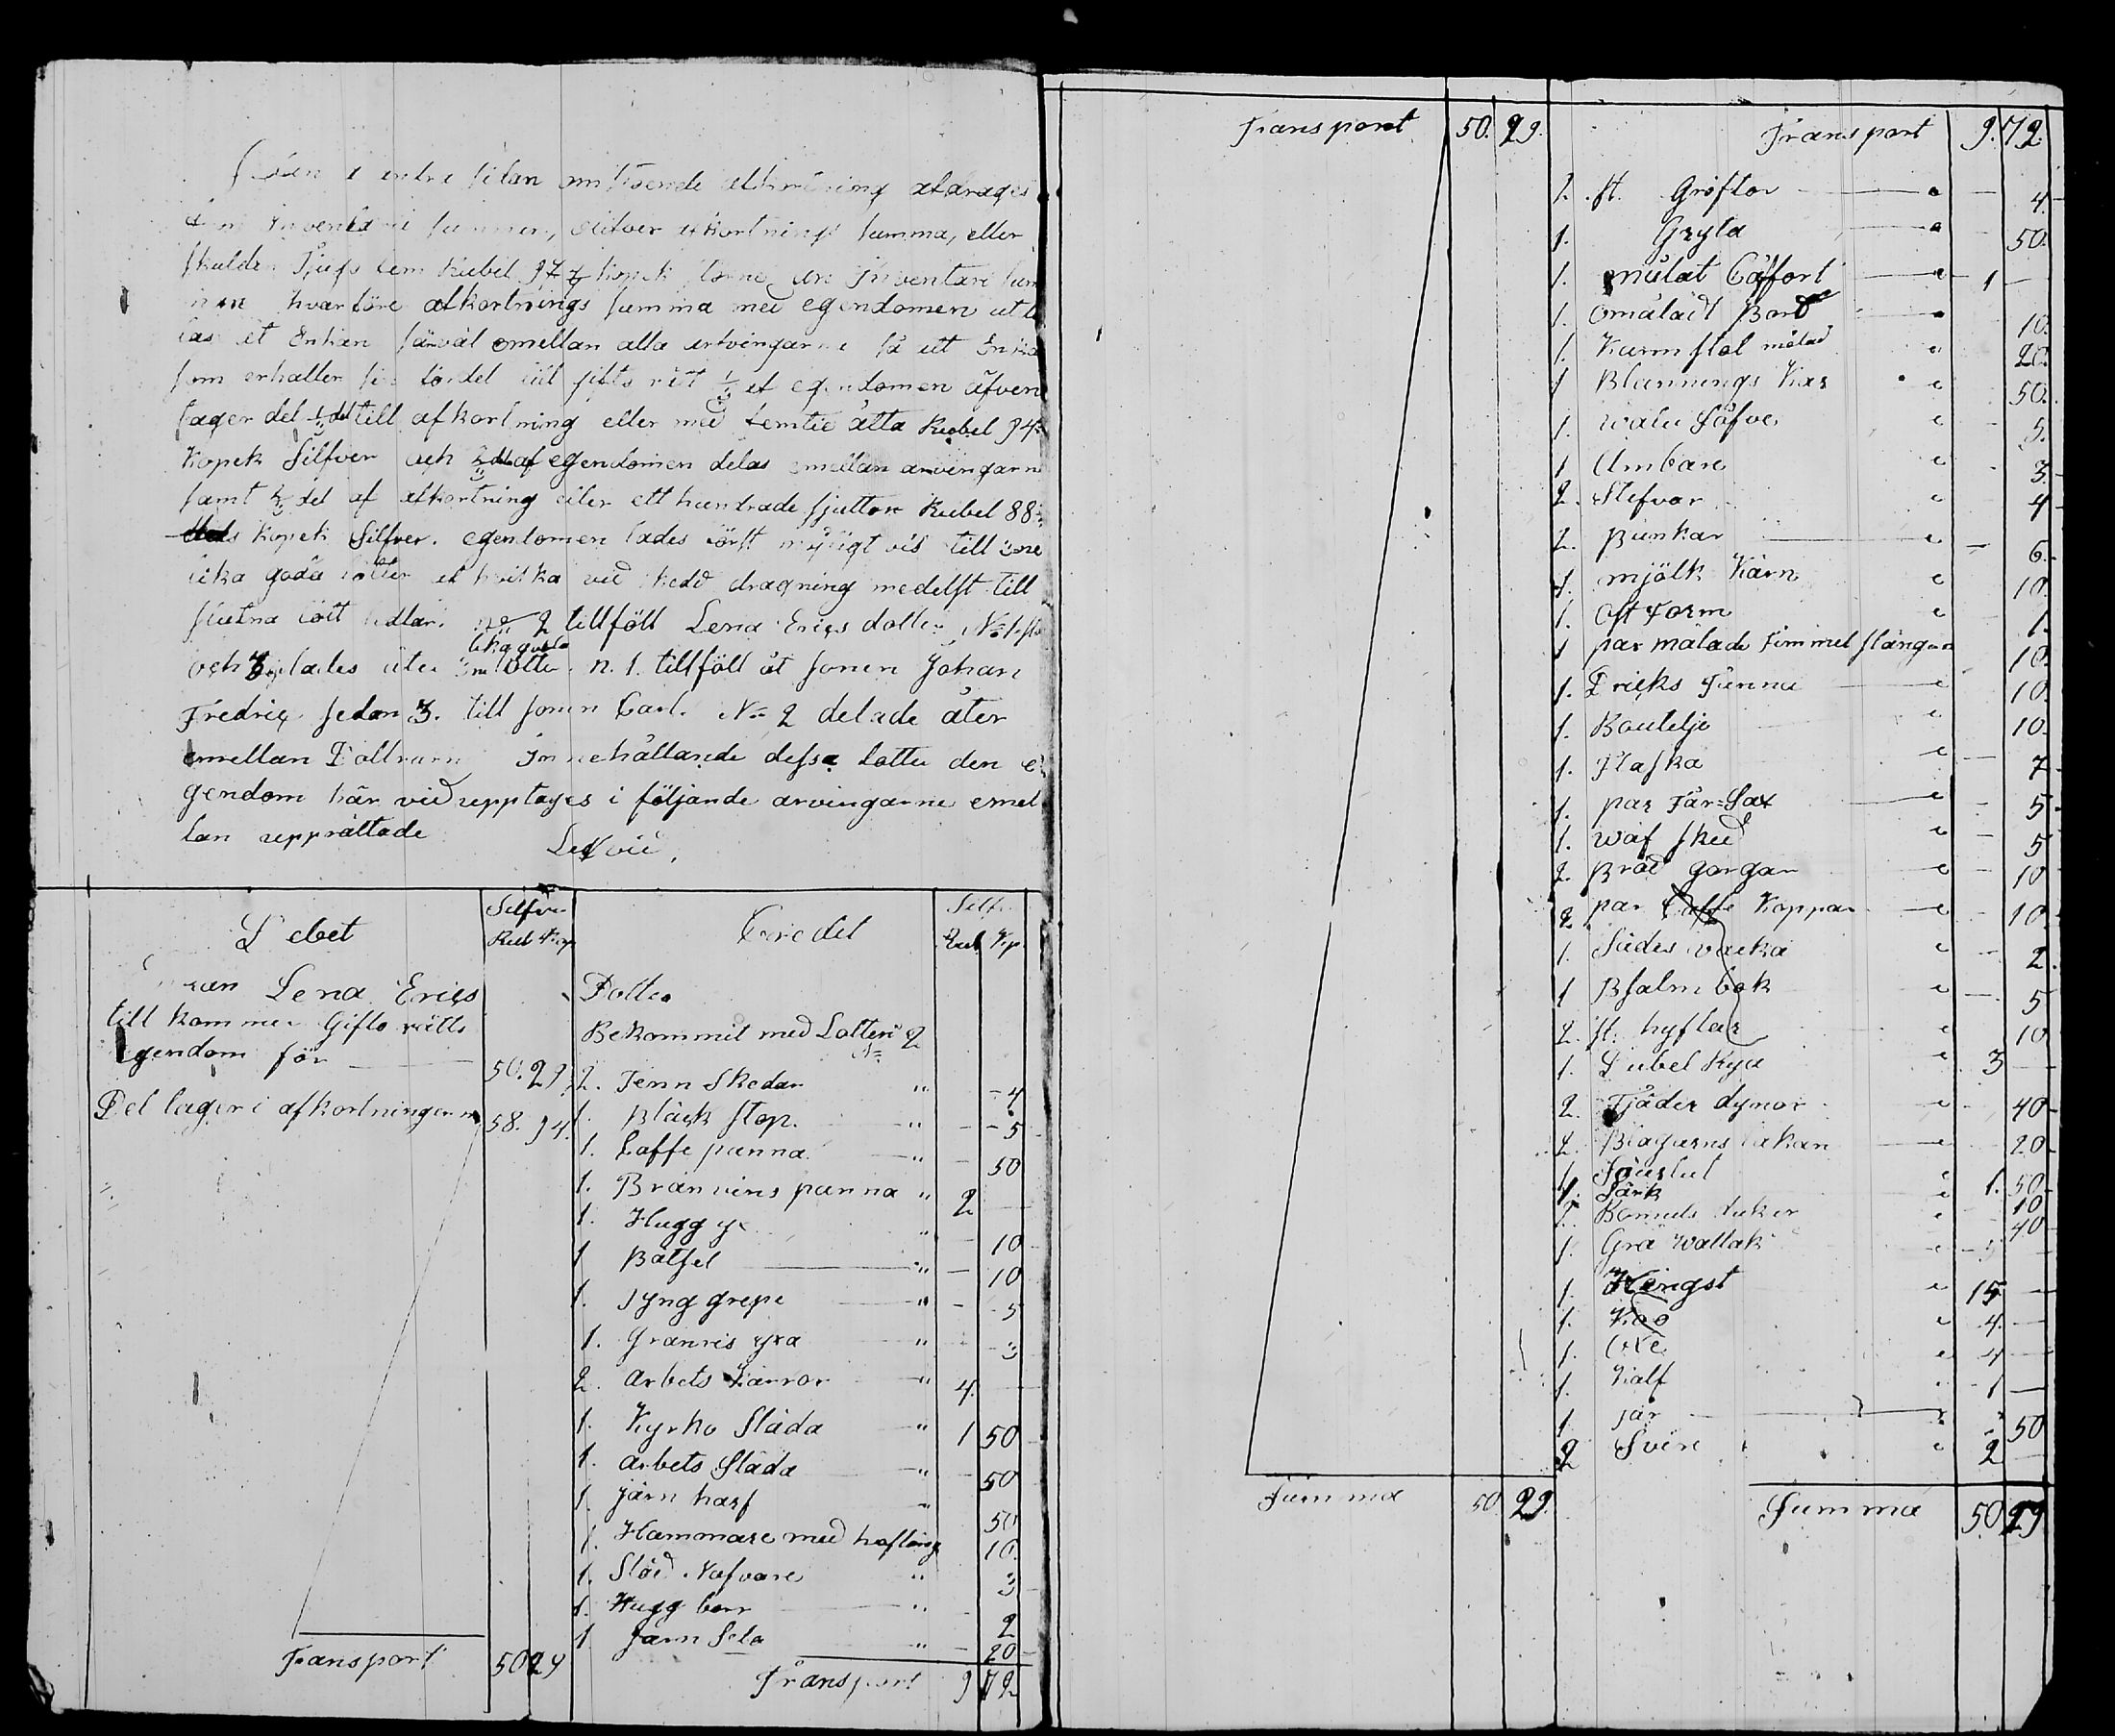 i entre sidan omförende afkortning afdrages
Inventarie summan, Silfver afkortnings summa, eller
skulden Tjugo fem Rubel 97 4/7 Kopek större än Inventarie sum
hvarföre afkortnings summa med egendomen utde
las åt Enkan såväl emellan alla arfvingarne så att Enkan
som erhåller sin fördel till gifts rätt 1/3 af egendomen äfven
tager del 1/3 del till afkortning eller med femtie åtta Rubel 94
Kopek Silfver och 2/3 del af egendomen delas emellan arvingarne
samt 2/3 del af afkortning eller ett hundrade sjutton Rubel 88
dels Kopek Silfver. egendomen lades först möjligt vis till
lika goda lotter af hvilka vid skedd dragning medelst till
slutna lott sedlar. No 2 tillföll Lena Erics dotter No 1
lika goda
och 3 lades åter lotter. n. 1. tillföll åt sonen Johan
Fredric sedan 3. till sonen Carl. No 2 delade åter
emellan Döttrarne Innehållande dessa lotter den e
gendom här vid upptages i följande arvingarne emel
lan upprättade
Likvid,
Debet
Silfver
Rub Kop
Credet
Silfv.
Rub Kp.
Lena Erics
till kommer Gifto rätts
Egendom för 50. 29.
Del tager i afkortningarne 58. 94.
Transport 50 29
Dotter
Bekommit med Lotten No 2
2. Tenn Skedar " 4
1. Bläck stop. " 5
1. Caffe panna " 50
1. Bränvins panna " 2
1. Hugg yx " 10
1 Båtsel " 10
1. Dyng grepe " 5
1. Granris yxa " 3
2. Arbets Kärror " 4.
1. Kyrko Släda " 1 50
1. Arbets Släda " 50
1. järn harf " 50
1. Hammare med hofting 10.
1. Slöd Nafvare " 3
1. Hugg borr " 2
1 Järn Sela " 20
Transport 9 72
Transport 50. 29.
Summa 50 29.
Transport 9. 72.
2. st. Gröftor 4.
1. Gryta 50.
1. målat Cåffort 1
1. omåladt Bord 10.
1. Karmstol målad 20.
1 Blannings Kar 50.
1. Såfve 5.
1 Ambare 3.
2. Stefvor 4
2. Bunkar 6.
1. mjölk Kärn 10.
1. Ost Form 1.
1 par målade Fimmel stänger 10.
1. Dricks Tunna 10.
1. Boutelje 10.
1. Flaska 7
1. par Får-Sax 5
1. Wäf sked 5
2. Bröd gorgar 10
2 par Caffe Koppar 10.
1. Sädes vacka 2.
1 Psalm bok 5
2. st. hyflar 10
1. Dubel Rya 3
2. Fjäder dynor 40
2. Blagarns lakan 20
1. 1. 50
1. Särk 10
1. Bomuls duker 40
1. Grå Wallak 5
1. Hingst 15
1. Koo 4.
1. Oxe 4
1. Kalf 1
1 får 50
2 Svin 2
Summa 50 29